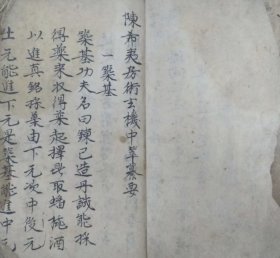 陳希夷房術玄機中萃纂要
一築基
築基功夫名曰鍊己造丹誠能採
得藥來収得藥起擇此取蟠純酒
以進真鉛採藥由下元次中後元
上元能進下元是築基能進中元